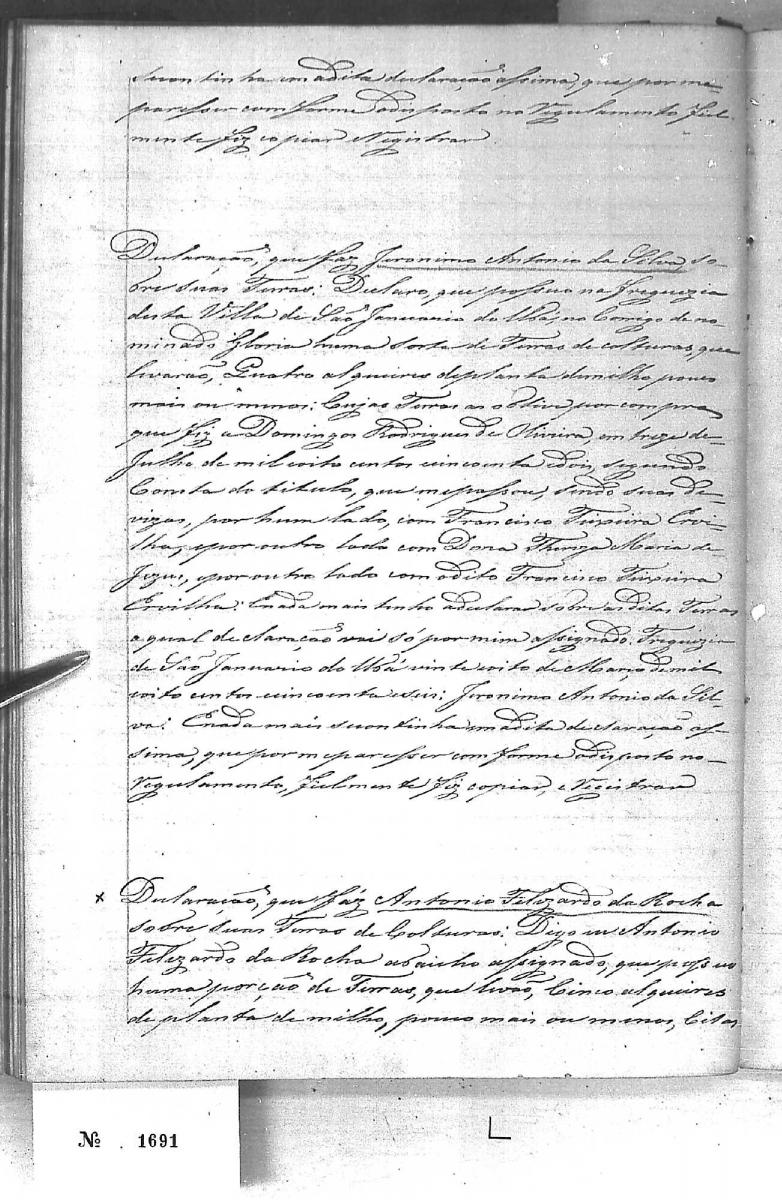 seContinha em adita declaração assima, que por me
paresser com forme adisposto no Regulamento Fiel-
mente fiz copiar e Registrar
Declaração, que faz Jeronimo Antonio da Silva, so-
bre suas Terras: Declaro, que possuo na Freguezia
desta Villa de São Januario do Ubá, no Corrigo deno-
minado Gloria huma sorte de Terras de colturas, que
livarão, Quatro alqueires deplanta demilho, pouco
mais ou menos: Cujas Terras as obtive, por compra
que fiz a Domingos Rodrigues de Oliveira, em treze de-
Julho de mil oito centos cincoenta edois, segundo
Consta do titulo, que mepassou, sendo suas de-
vizas, por hum lado, com Francisco Teixeira Ervi-
lha, epor outro lado com Dona Thereza Maria de
Jezus, epor outro lado com odito Francisco Teixeira
Ervilha: Enada mais tenho adeclarar sobre asditas Terras
aqual declaração vai só por mim assignado. Freguezia
de São Januario do Ubá vinte eoito de Março de mil
oito centos cincoenta eseis: Jeronimo Antonio da Sil-
va: Enada mais secontinha em adita declaração as-
sima, que por meparesser com forme adisposto no-
Regulamento, Fielmente fiz copiar, e Registrar
x Declaração, que fáz Antonio Felizardo da Rocha
sobre suas Terras de Colturas: Digo eu Antonio
Felizardo da Rocha abaicho assignado, que possuo
huma porção de Terras, que livão, Cinco alqueires
de planta de milho, pouco mais ou menos, Citas
Nº 1691